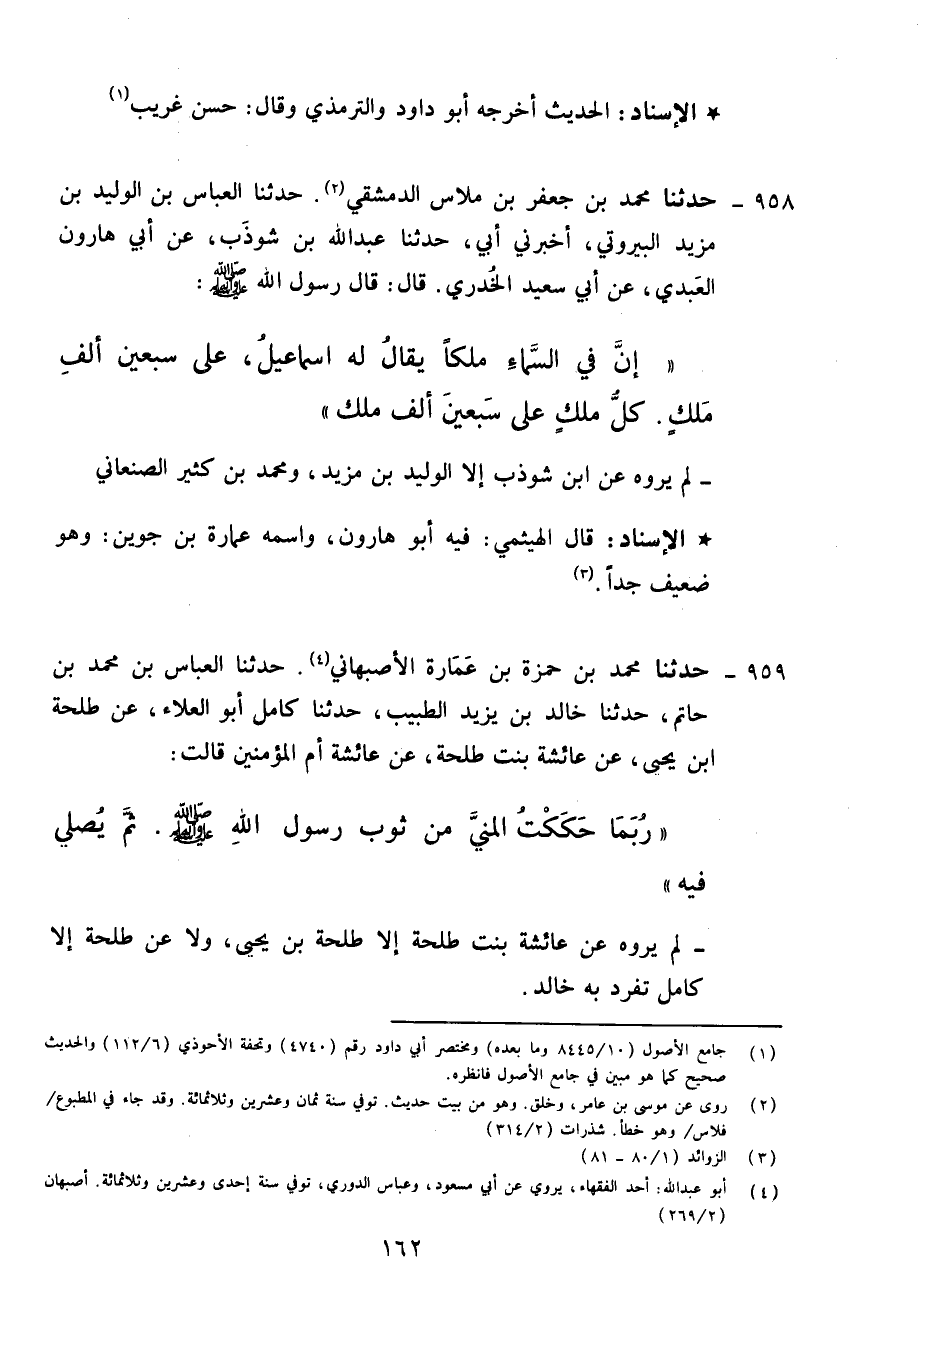 ★ الإسناد: الحديث أخرجه أبو داود والترمذي وقال: حسن غريب(١)
٩٥٨ ـ حدثنا محمد بن جعفر بن ملاس الدمشقي(٢). حدثنا العباس بن الوليد بن
مزيد البيروتي، أخبرني أبي، حدثنا عبدالله بن شوذَب، عن أبي هارون
العَبدي، عن أبي سعيد الخُدري. قال: قال رسول الله ﷺ :
« إنَّ في السَّماءِ ملكاً يقالُ له اسماعيلُ، على سبعين ألفِ
مَلكٍ. كلُّ ملكٍ على سَبعينَ ألف ملك »
ـ لم يروه عن ابن شوذب إلا الوليد بن مزيد، ومحمد بن كثير الصنعاني
★ الإسناد: قال الهيثمي: فيه أبو هارون، واسمه عمارة بن جوين: وهو
ضعيف جداً.(٣)
٩٥٩ ـ حدثنا محمد بن حمزة بن عَمَارة الأصبهاني(٤). حدثنا العباس بن محمد بن
حاتم، حدثنا خالد بن يزيد الطبيب، حدثنا كامل أبو العلاء، عن طلحة
ابن يحيى، عن عائشة بنت طلحة، عن عائشة أم المؤمنين قالت:
« رُبَمَا حَكَكْتُ المنيَّ من ثوب رسول اللهِ ﷺ . ثمَّ يُصلي
فيه »
ـ لم يروه عن عائشة بنت طلحة إلا طلحة بن يحيى، ولا عن طلحة إلا
كامل تفرد به خالد.
(١) جامع الأصول (٨٤٤٥/١٠ وما بعده) ومختصر أبي داود رقم (٤٧٤٠) وتحفة الأحوذي (١١٢/٦) والحديث
صحيح كما هو مبين في جامع الأصول فانظره.
(٢) روى عن موسى بن عامر، وخلق. وهو من بيت حديث. توفي سنة ثمان وعشرين وثلاثمائة. وقد جاء في المطبوع/
فلاس/ وهو خطأ. شذرات (٣١٤/٢)
(٣) الزوائد (٨٠/١ ـ ٨١)
(٤) أبو عبدالله: أحد الفقهاء، يروي عن أبي مسعود، وعباس الدوري، توفي سنة إحدى وعشرين وثلاثمائة. أصبهان
(٢٦٩/٢)
١٦٢